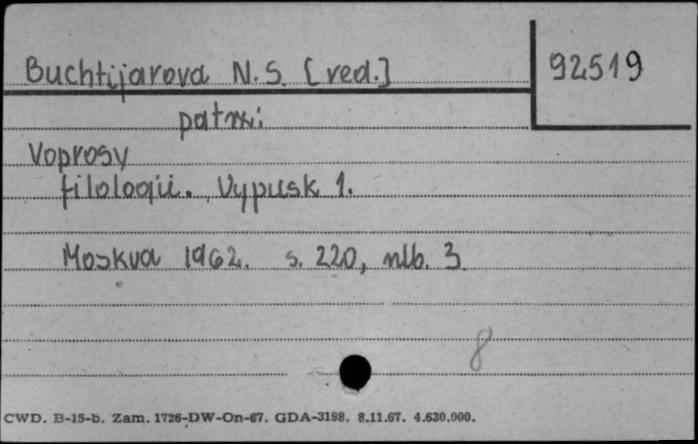 Buchtijarova N. S. [red.]
92519
patrz:
Voprosy
filologii. Vypusk 1.
Moskva 1962. s. 220, nlb. 3.
8
CWD. B-15-b. Zam. 1726-DW-On-67. GDA-3198. 8.11.67. 4.630.000.